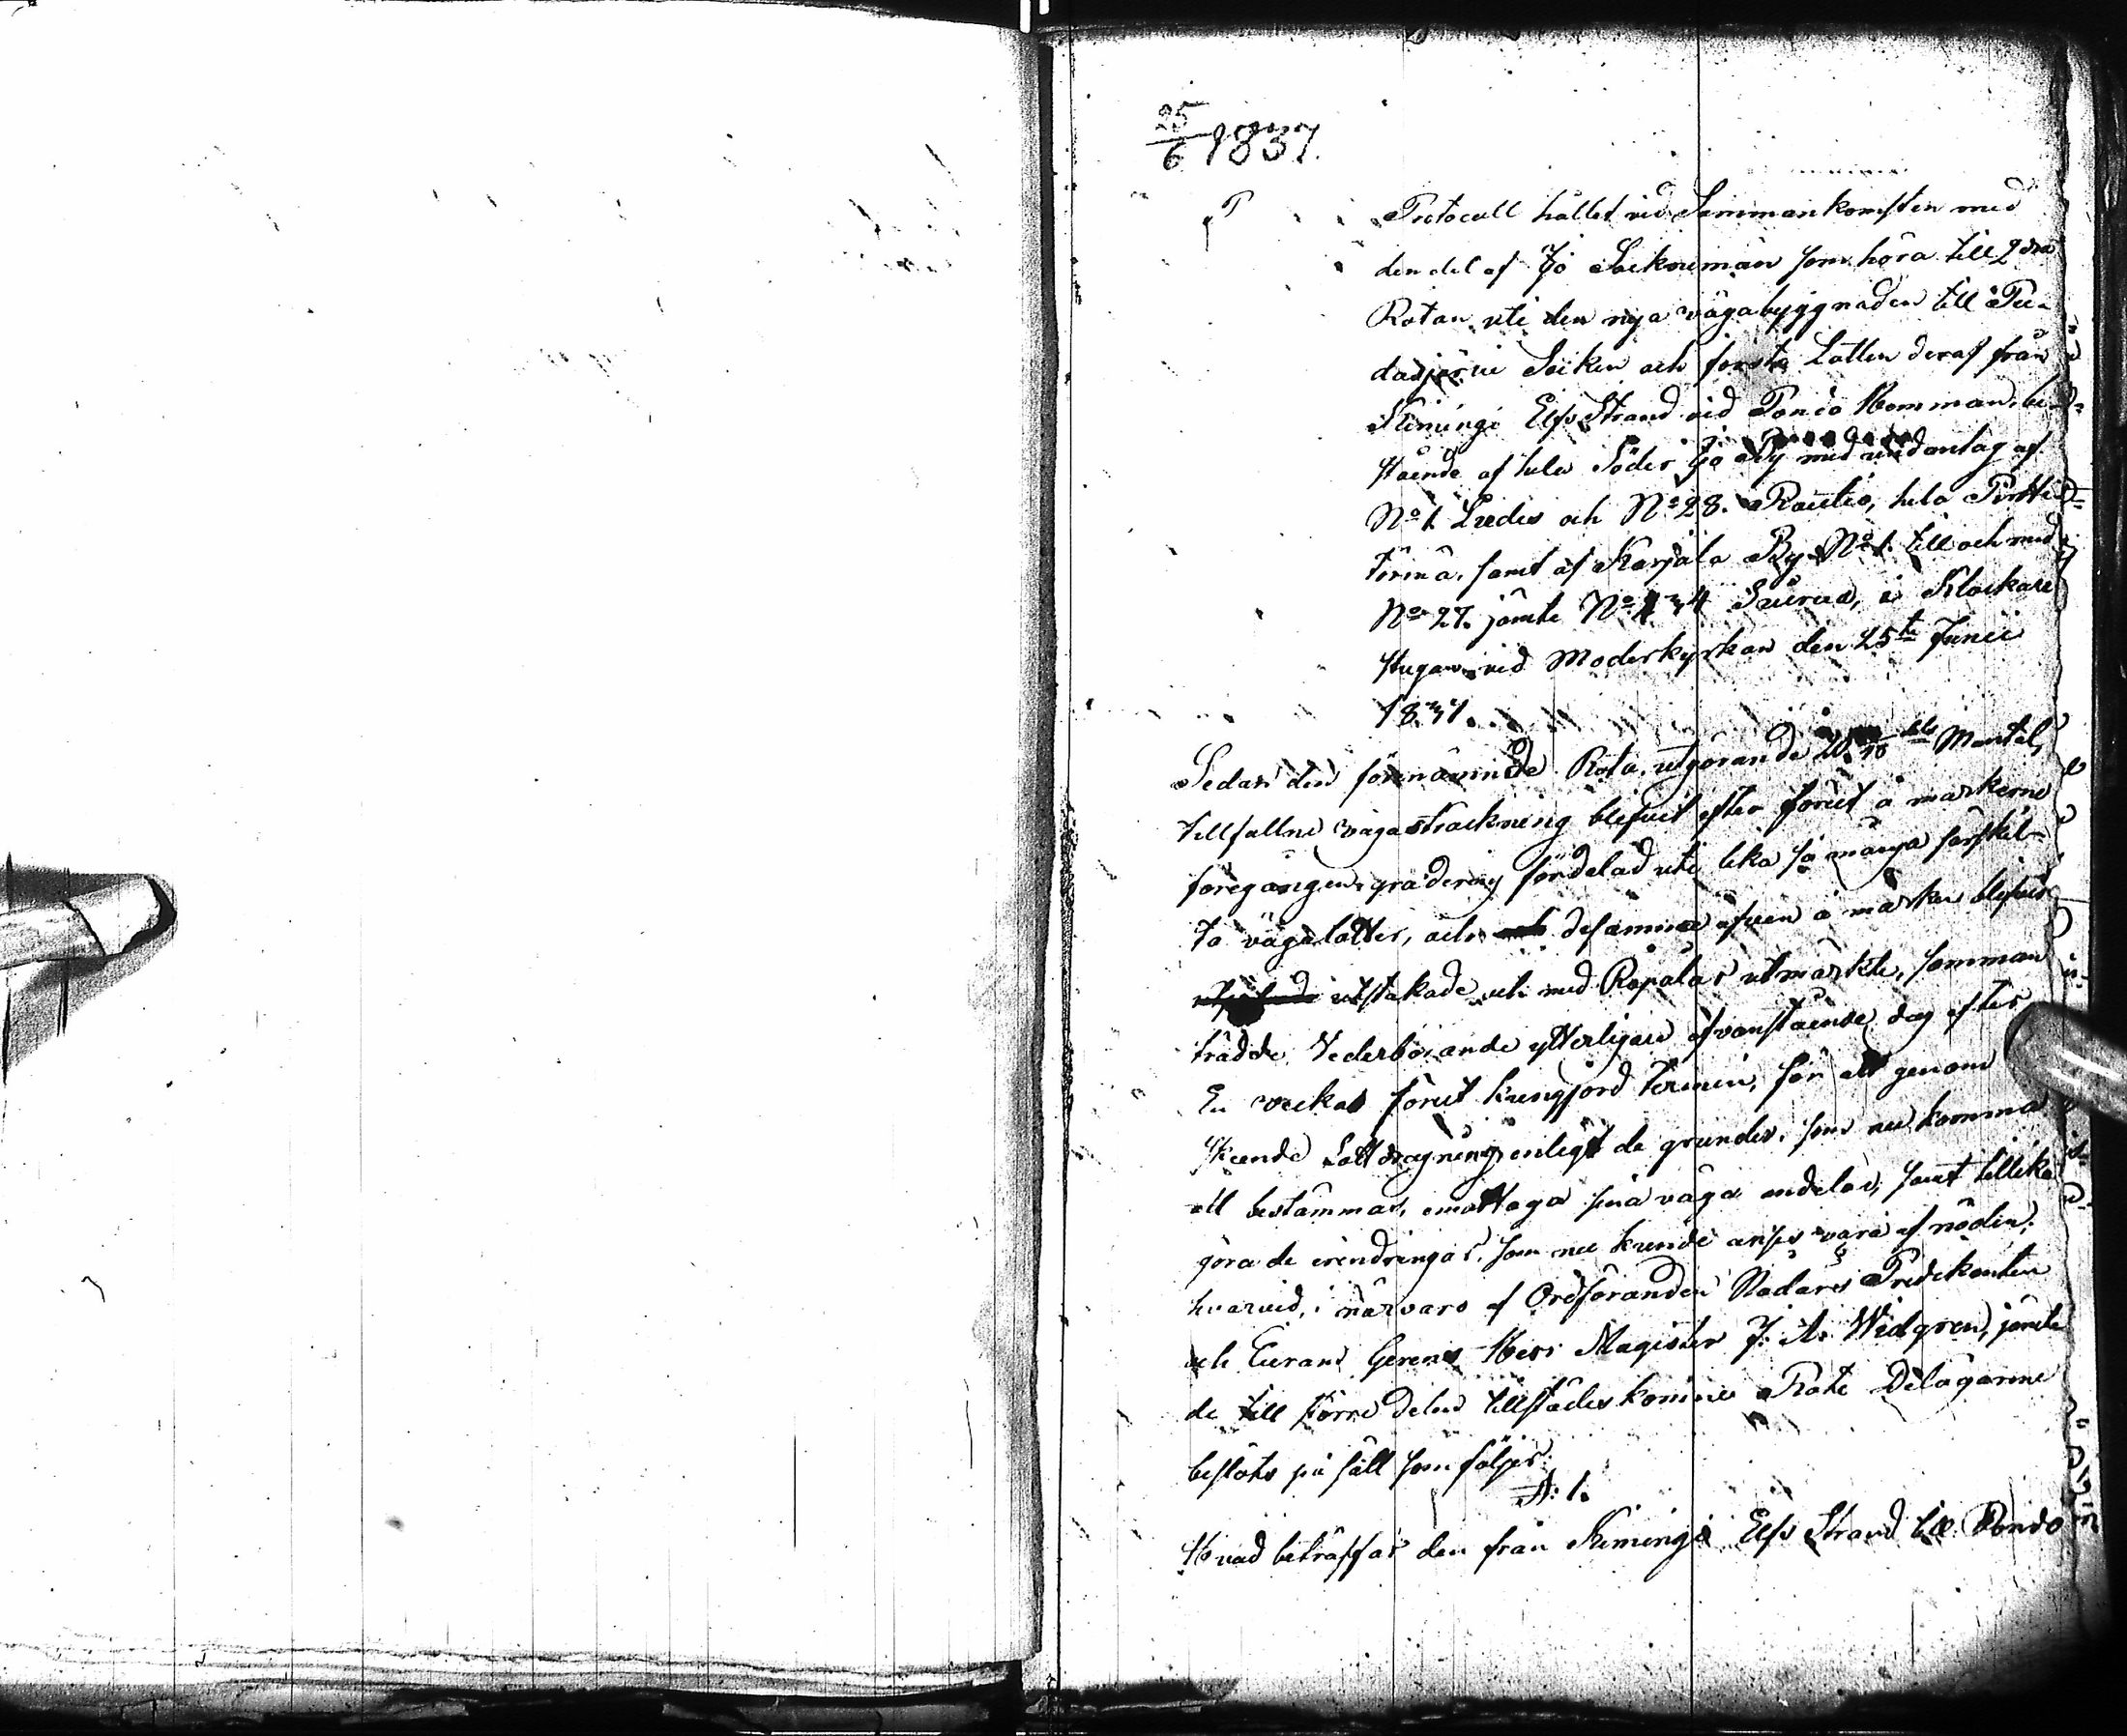 25/6 1837.
Protocoll hållet vid Sammankomsten med
den del af Ijo Sockenemän som höra till 2dra
Rotan uti den nya vägabyggnaden till Pu-
dasjärvi Socken och första Lotten deraf från
Kiminge Elfs Strand vid Ponio Hemman, be-
stående af hela Söder Ijo By med undantag af
No 1. Liedes och No 28. Rautio, hela Pirtti-
törmä, samt af Karjala By No 1. till och med
No 27. jämte No 34 Suirua, i Klockare
stugan vid Moderkyrkan den 25te Junii
1837.
Sedan den förenämnde Rota, utgörande Mantal,
tillfallne vägasträckning blifvit efter förut å markerne
föregången gradering fördelad uti lika så många särskil-
ta vägalotter, och desamme äfven å marken blifvit
utstakade och med Råpålar utmärkte, samman
trädde Vederbörande ytterligare ofvanstående dag efter
En veckas förut kungjord termin, för att genom
skeende Lottdragning enligt de grunder, som nu komma
att bestämmas, emottaga sina väga andelar, samt tillika
göra de erindringar, som nu kunde anses vara af nöden;
hvarvid, i närvaro af Ordföranden Nådårs Predikanten
och Curam Gerens Herr Magister J. A. Widgren, jämte
de till större delen tillstädes komne Rote Delägarene
beslöts på sätt som följer:
§: 1.
Hvad beträffar den från Kiminge Elfs Strand till